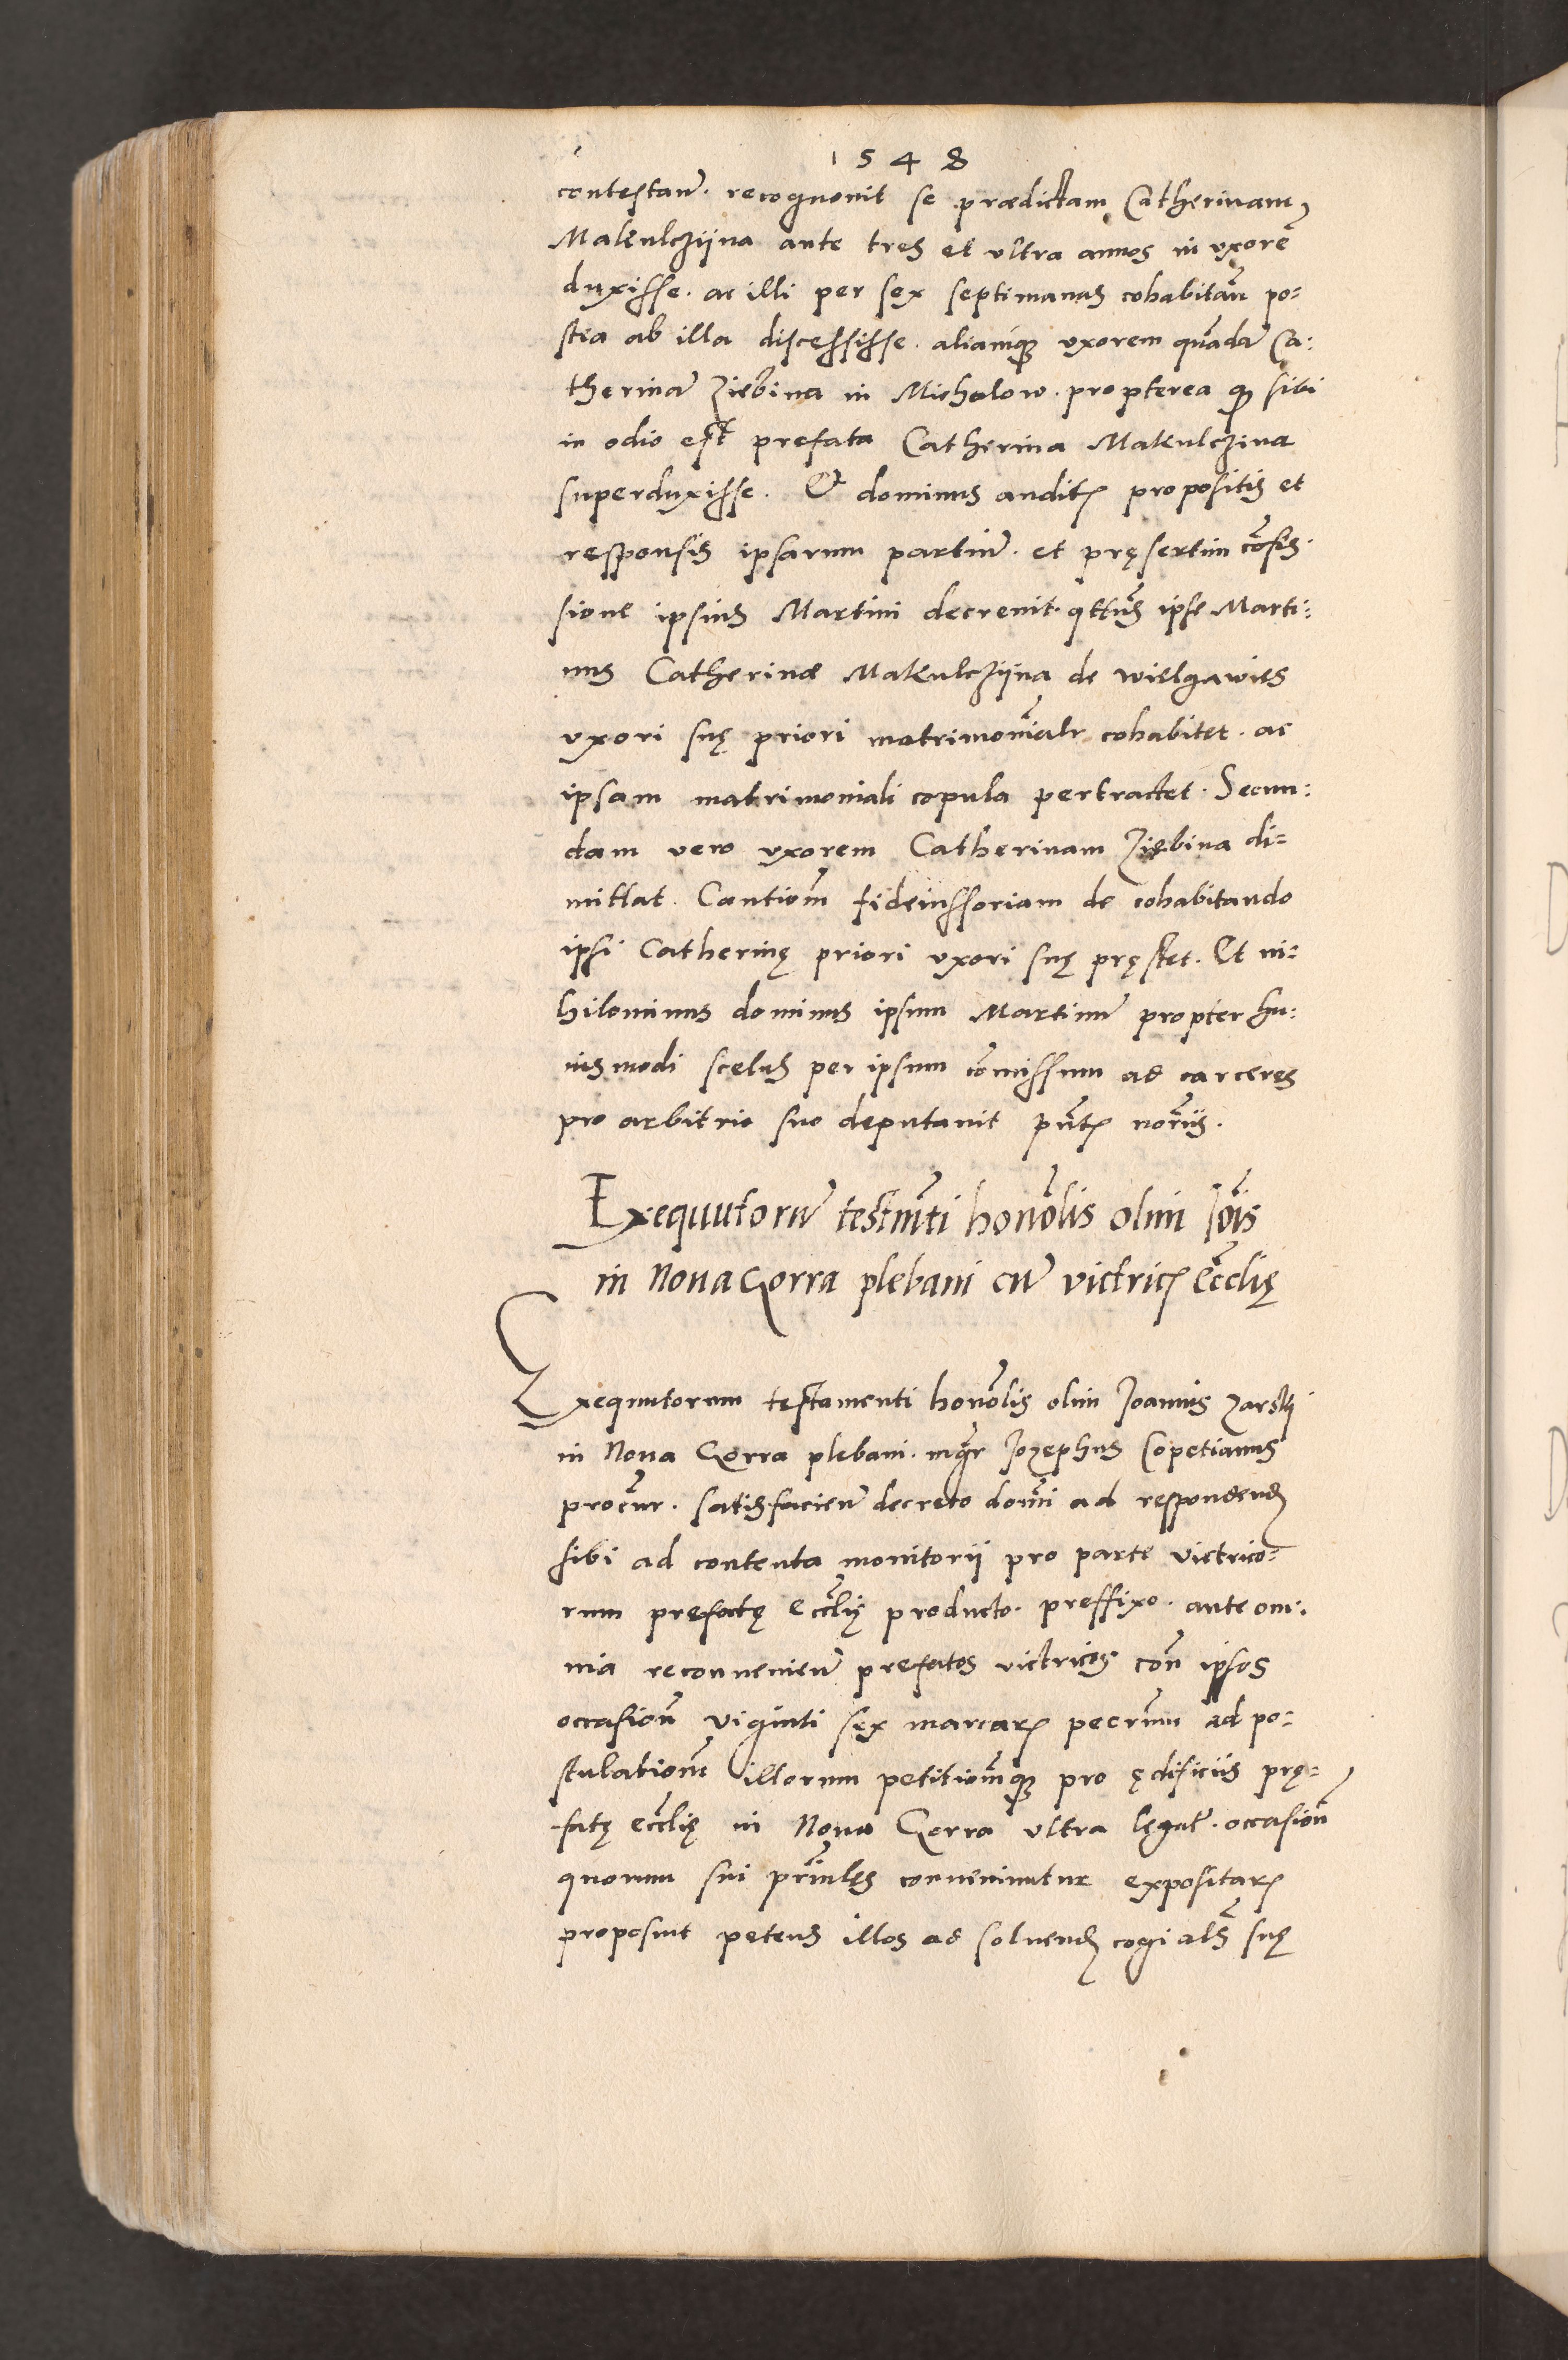 1548
contestanṫ. recognovit se prædictam Catherinam
Makulcziina ante tres et ultra annos in uxorē
duxisse. ac illi per sex septimanas cohabitān po=
stea ab illa discessisse. aliamq3 uxorem quādā Ca=
therinā Ziebina in Michalow. propterea q3 sibi
in odio est prefata Catherina Makulczina
superduxisse. Et dominus auditis propositis et
responsis ipsarum partiū. et pręsertim cōfes=
sione ipsius Martini decrevit. q̄tūs ipse Marti=
nus Catherinæ Makulcziina de Wielgawies
uxori suę priori matrimoniālr cohabitet. ac
ipsam matrimoniali copula pertractet. Secun=
dam vero uxorem Catherinam Ziebina di=
mittat. Cautiōm fideiussoriam de cohabitando
ipsi Catherinę priori uxori suę pręstet. Et ni=
hilominus dominus ipsum Martinū propter hu=
iusmodi scelus per ipsum cōmissum ad carceres
pro arbitrio suo deputavit pn̄tibus nōriis.
Exequutorū testm̄ti honōlis olim Iōis
in Nova Gorra plebani cū victricis ecclię
Exequutorum testamenti honōlis olim Joannis Zarskj
in Nova Gorra plebani. mgr̄ Jozephus Copetianus
procūr. satisfaciendo decreto domīni ad respondend
sibi ad contenta monitorii pro parte victrico=
rum prefatę ecclię producto. preffixo. ante om=
nia reconveniendo prefatos victricos cōn ipsos
occasiōn viginti sex marcarum pecunm̄ ad po=
stulatiōm illorum petitiōmq3 pro ędificiis prę=
fatę ecclię in Nova Gorra ultra legatum. occasiōn
quorum sui prīnles conveniuntur expositarum
proposuit petens illos ad solvend cogi als̄ suę